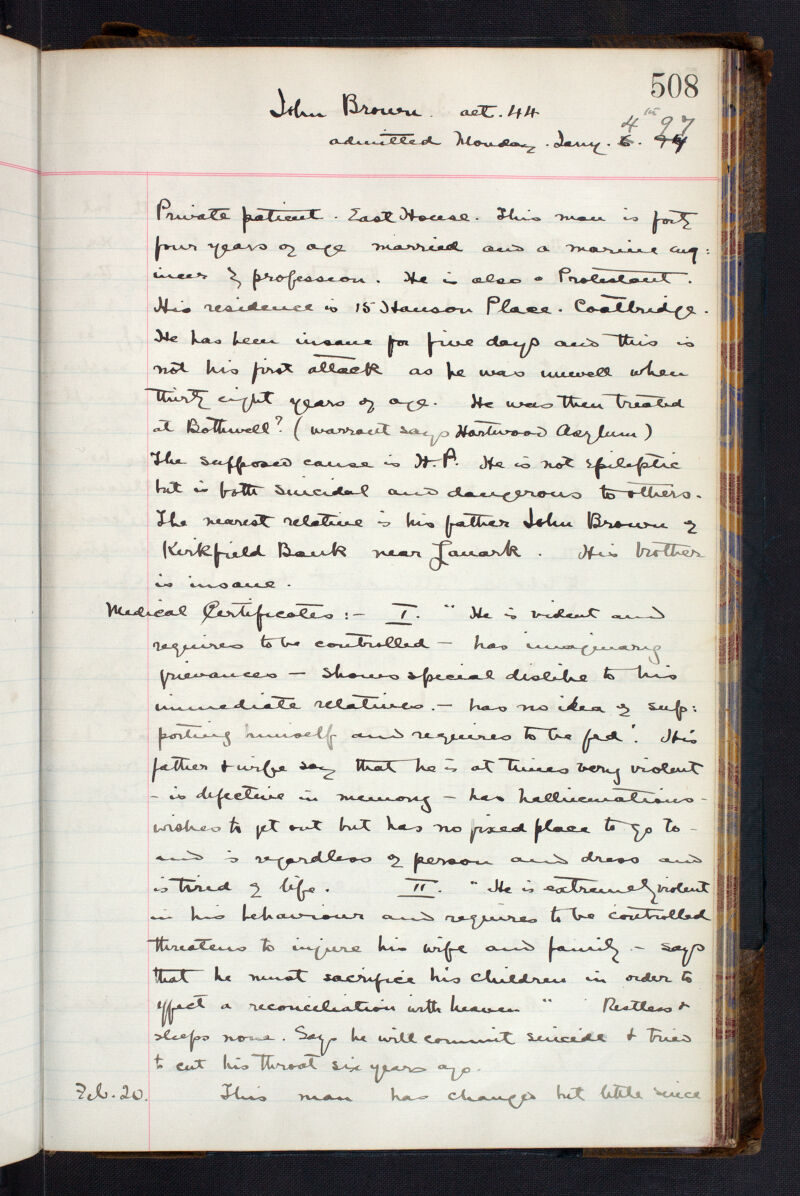 508
John Brown. aet. 44
4th 97
admitted Monday. Jany. 6.
Private patient. East House. This man is forty
four years of age married and a marine eng:
ineer by profession. He is also a Protestant.
His residence is 15 Hanson Place. Coatbridge.
He has been insane for five days and this is
not his first attack as he was unwell when
thirty eight years of age. He was then treated
at Bothwell? (warrant says Hartwood Asylum)
The supposed cause is H.P. He is not epileptic
but is both suicidal and dangerous to others.
The nearest relative is his father John Brown of
Kirkfield Bank near Lanark. His brother
is insane.
Medical Certificates:- I. "He is violent and
requires to be controlled - has imaginary
grievances - shows special dislike to his
immediate relatives. - has no idea of sup:
porting himself and requires to be fed". His
father & wife say that he is at times very violent
- is defective in memory - has hallucinations -
wishes to get out but has no fixed place to go to -
and is regardless of person and dress and
is tired of life. II. "He is extremely violent
in his behaviour and requires to be controlled
threatens to injure his wife and family - says
that he must sacrifice his children in order to
effect a reconciliation with heaven" Restless &
sleeps none. Says he will commit suicide & tried
to cut his throat six years ago.
Feb. 20. This man has changed but little since